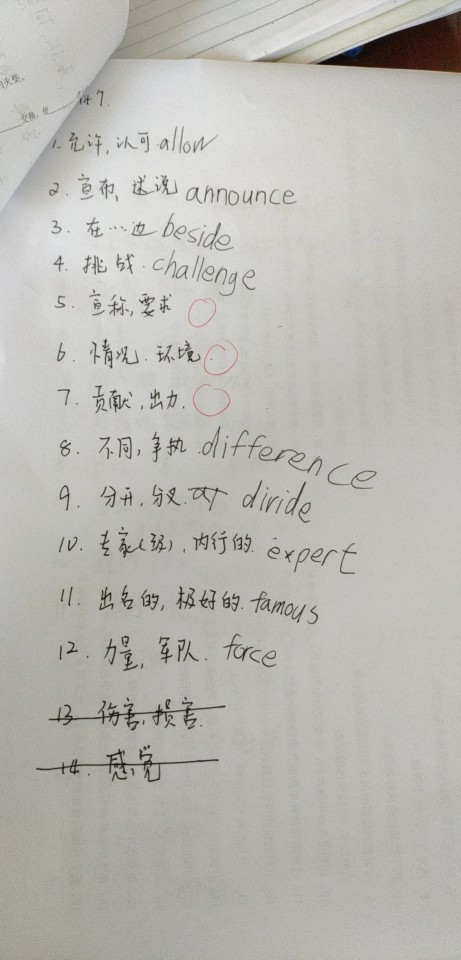 1. 允许,认可 allow
2. 宣布, 述说 announce
3. 在…边 beside
4. 挑战. challenge
5. 宣称,要求
6. 情况. 环境.
7. 贡献,出力.
8. 不同,争执. difference
9. 分开,分叉. divide
10. 专家(级),内行的. expert
11. 出名的,极好的. famous
12. 力量,军队. force
13. 伤害,损害.
14. 感觉